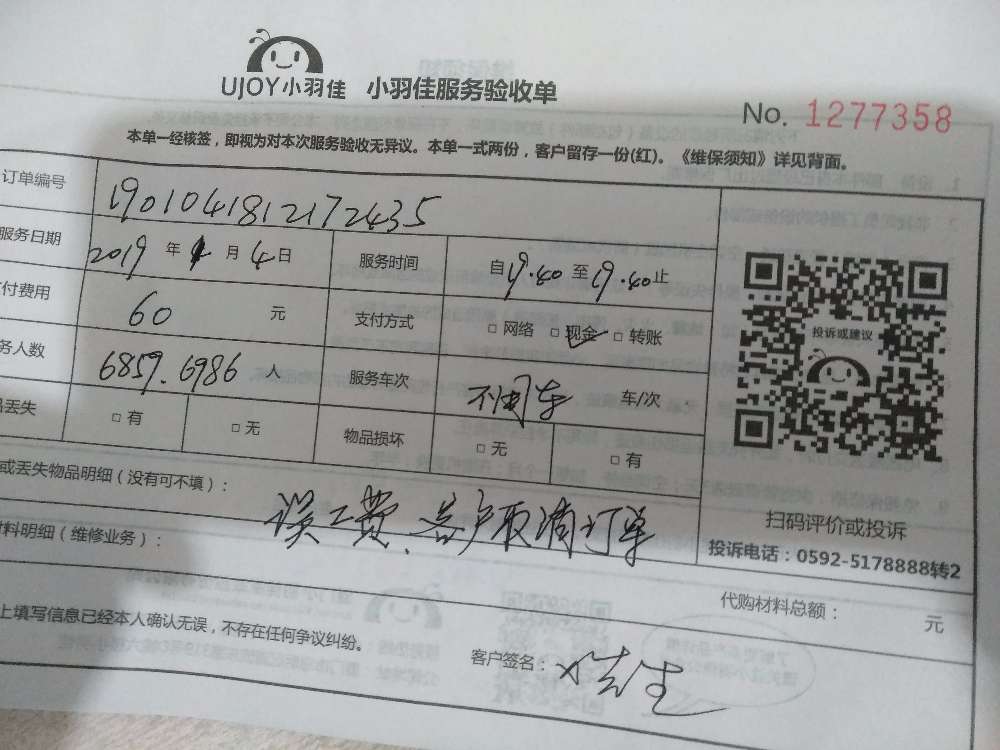 UJOY小羽佳 小羽佳服务验收单
No. 1277358
本单一经核签，即视为对本次服务验收无异议。本单一式两份，客户留存一份(红)。《维保须知》详见背面。
订单编号 1901041812172435
服务日期 2019 年 1 月 4 日 服务时间 自 19.40 至 19.40 止
付费用 60 元 支付方式 □ 网络 □ 现金 □ 转账
务人数 6859.6986 人 服务车次 不用车 车/次
丢失 □ 有 □ 无 物品损坏 □ 无 □ 有
或丢失物品明细（没有可不填）：
误工费、客户取消订单
料明细（维修业务）：
投诉或建议
扫码评价或投诉
投诉电话：0592-5178888转2
代购材料总额： 元
上填写信息已经本人确认无误，不存在任何争议纠纷。
客户签名：